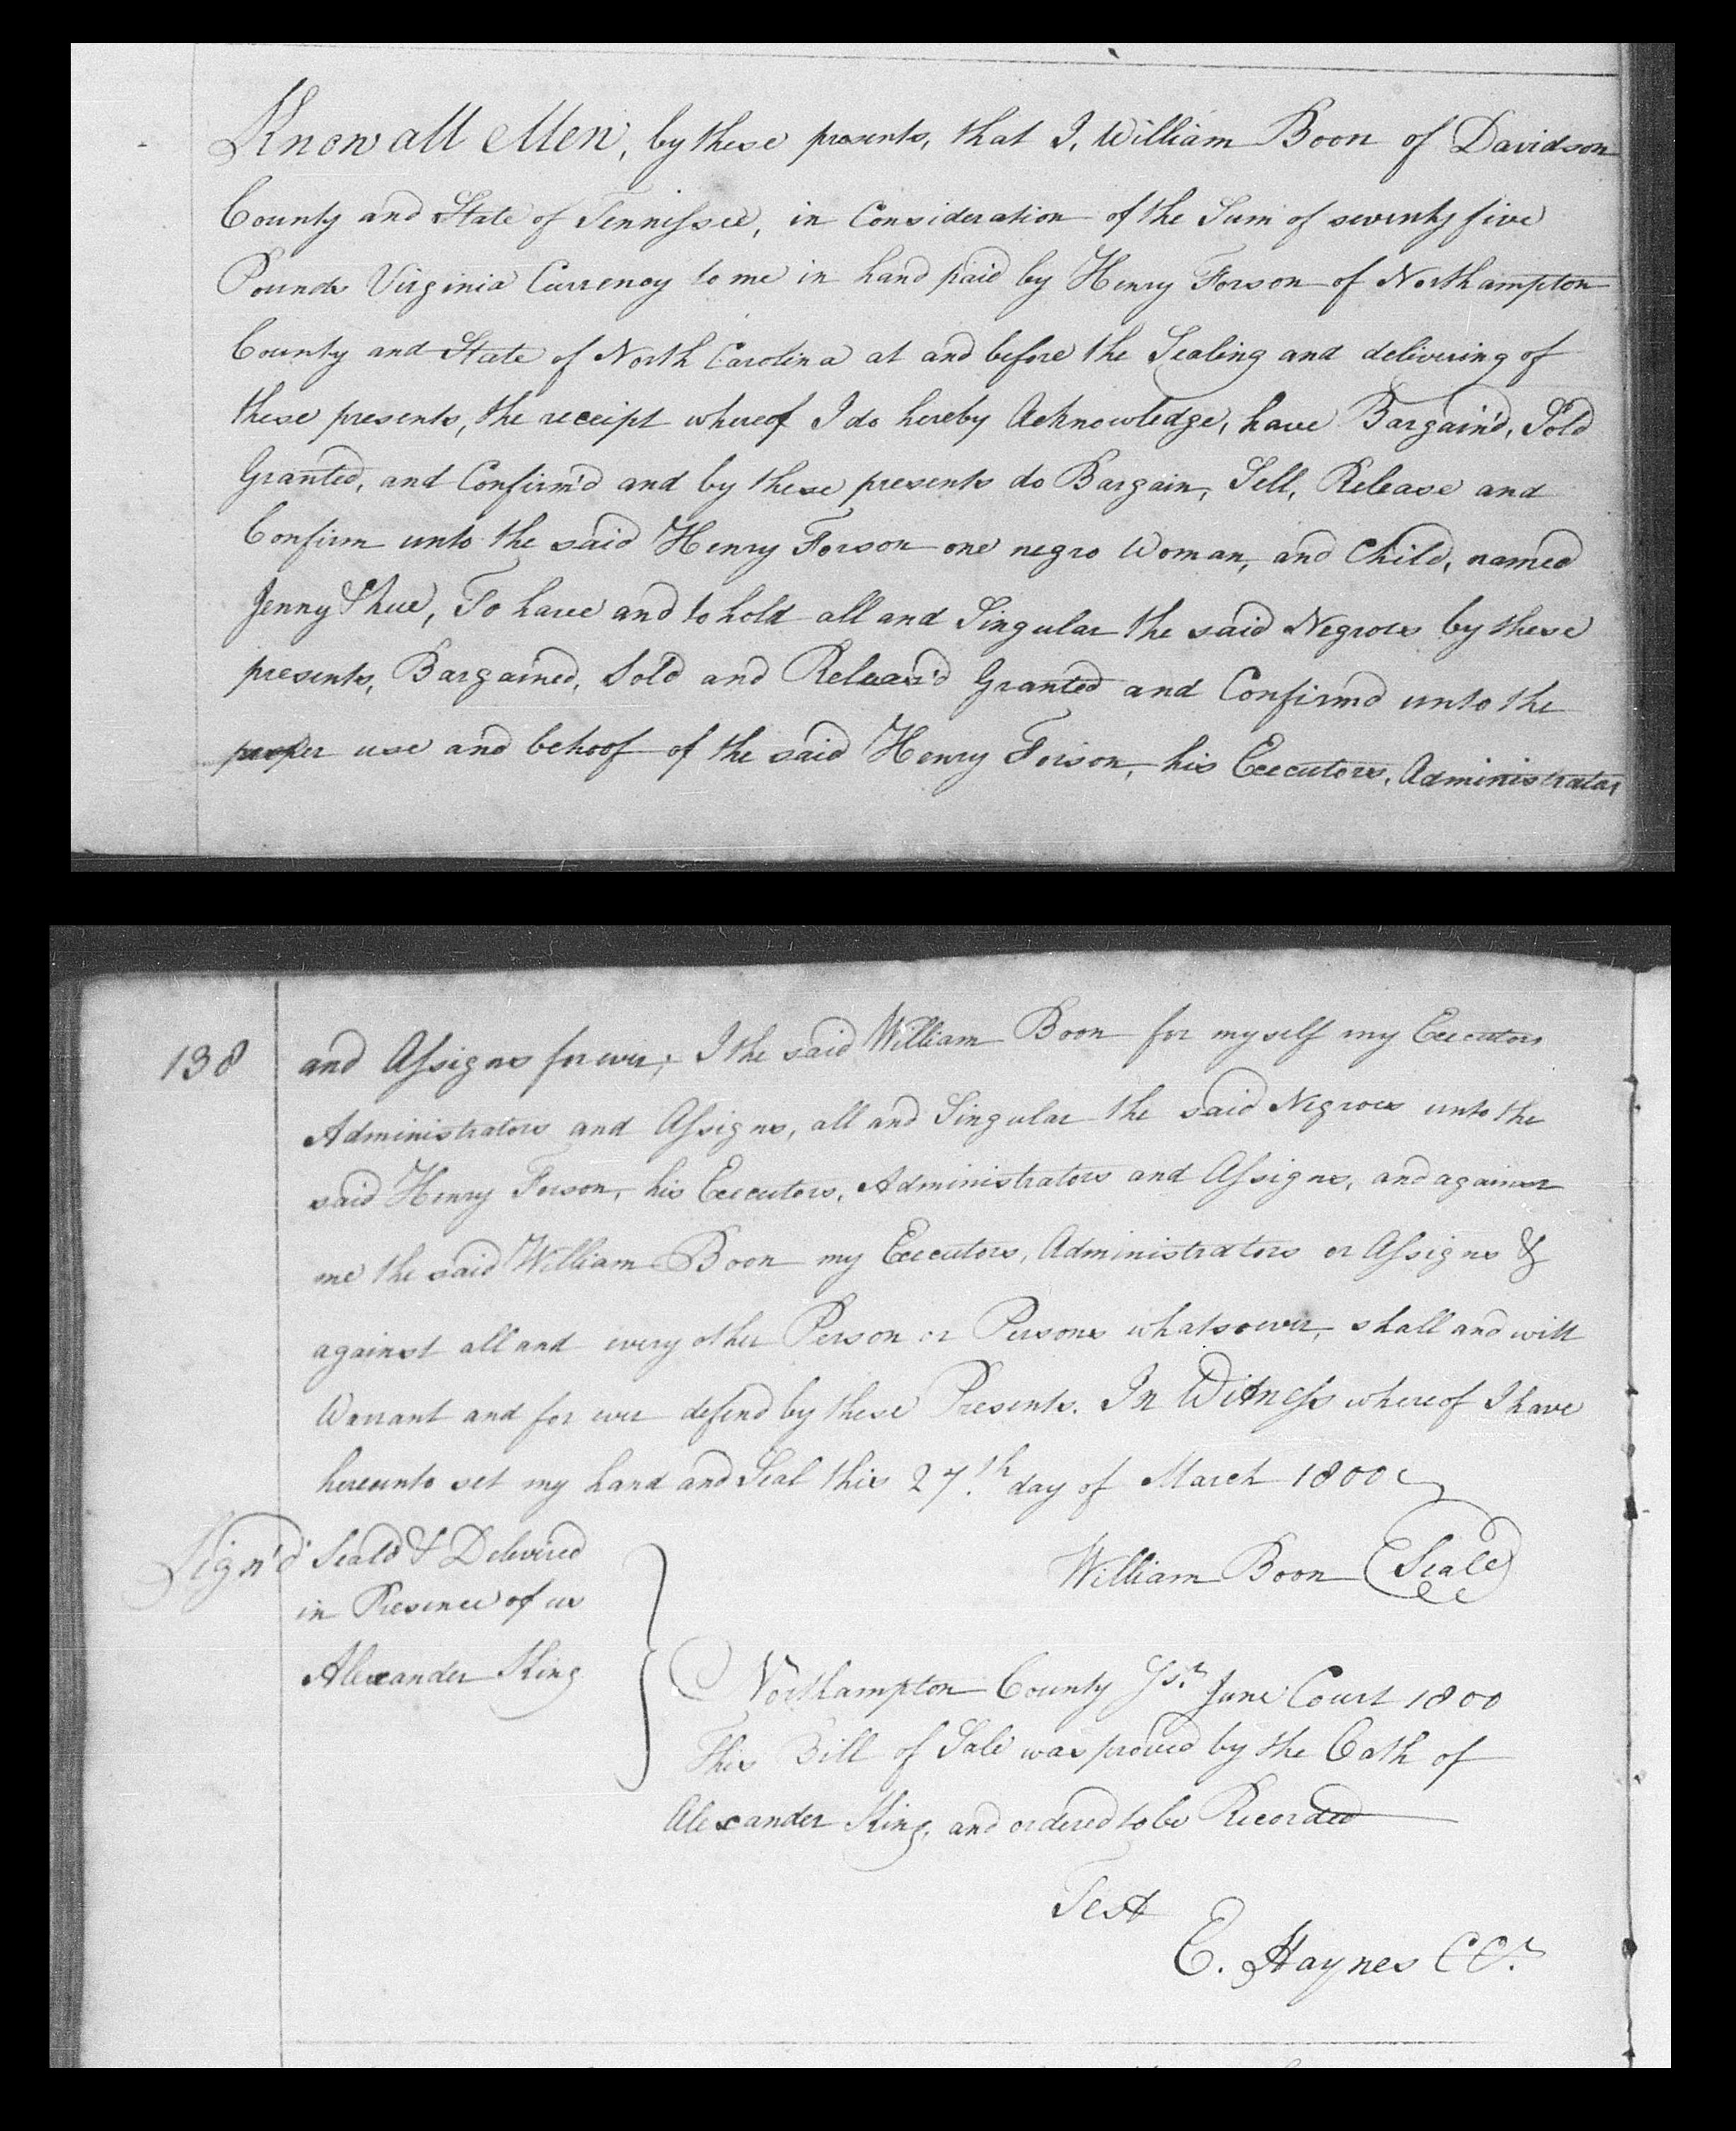 Know all Men, by these presents, that I, William Boon of Davidson
County and State of Tennissee, in Consideration of the Sum of seventy five
Pounds Virginia Currency to me in hand paid by Henry Forson of Northampton
County and State of North Carolina at and before the Sealing and delivering of
these presents, the receipt whereof I do hereby Acknowledge, have Bargain'd, Sold
Granted, and Confirm'd and by these presents do Bargain, Sell, Release and
Confirm unto the said Henry Forson one negro Woman, and Child, named
Jenny &, To have and to hold all and Singular the said Negroes by these
presents, Bargained, Sold and Releas'd Granted and Confirm'd unto the
proper use and behoof of the said Henry Forson, his Executors, Administrators
138
and Assigns for ever; I the said William Boon for myself my Executors
Administrators and Assigns, all and Singular the said Negroes unto the
said Henry Forson, his Executors, Administrators and Assigns, and against
me the said William Boon my Executors, Administrators or Assigns &
against all and every other Person or Persons whatsoever, shall and will
Warrant and for ever defend by these Presents. In Witness whereof I have
hereunto set my hand and Seal this 27th day of March 1800
Sign'd Seald & Delivered
in Presence of us
Alexander King
William Boon (Seal)
Northampton County June Court 1800
This Bill of Sale was proved by the Oath of
Alexander King, and ordered to be Recorded
Test
E. Haynes CCt